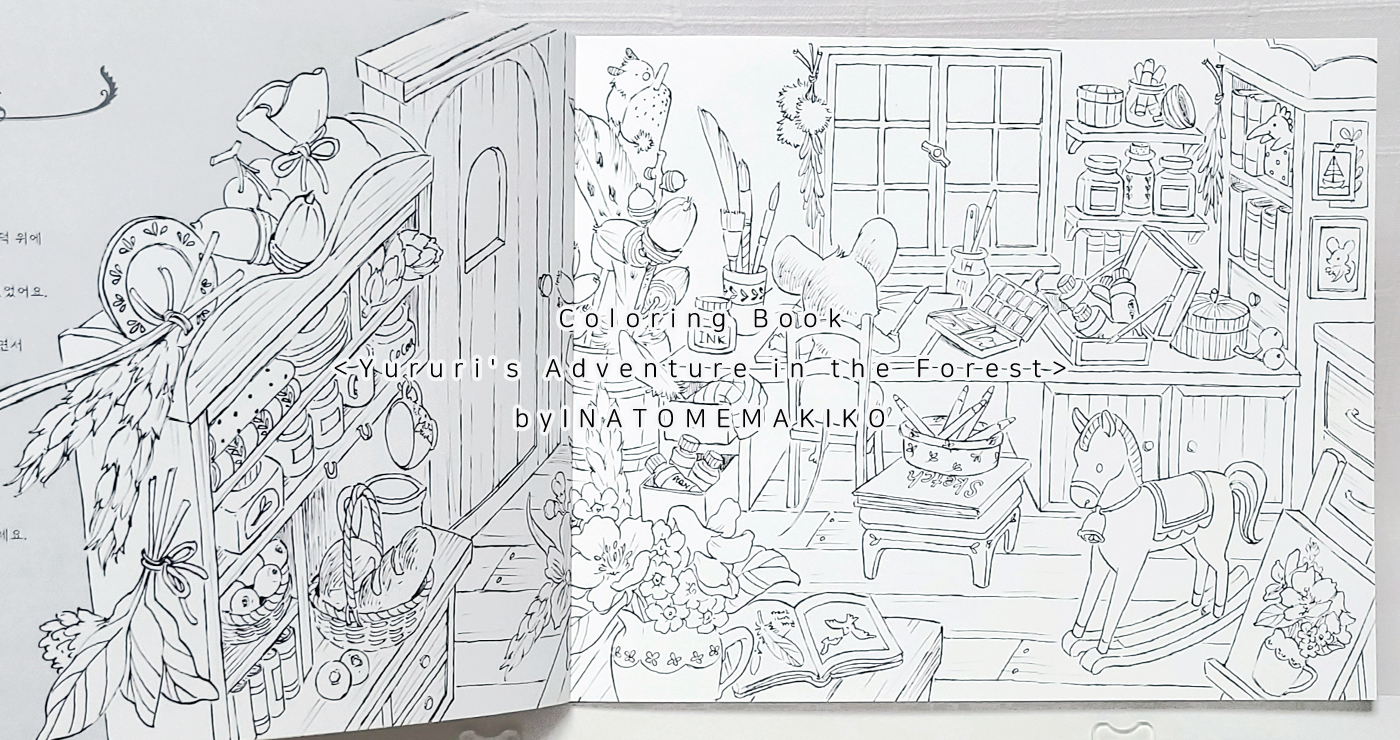 턱 위에
었어요.
면서
세요.
Coloring Book
<Yururi's Adventure in the Forest>
byINATOMEMAKIKO
INK
Sketch